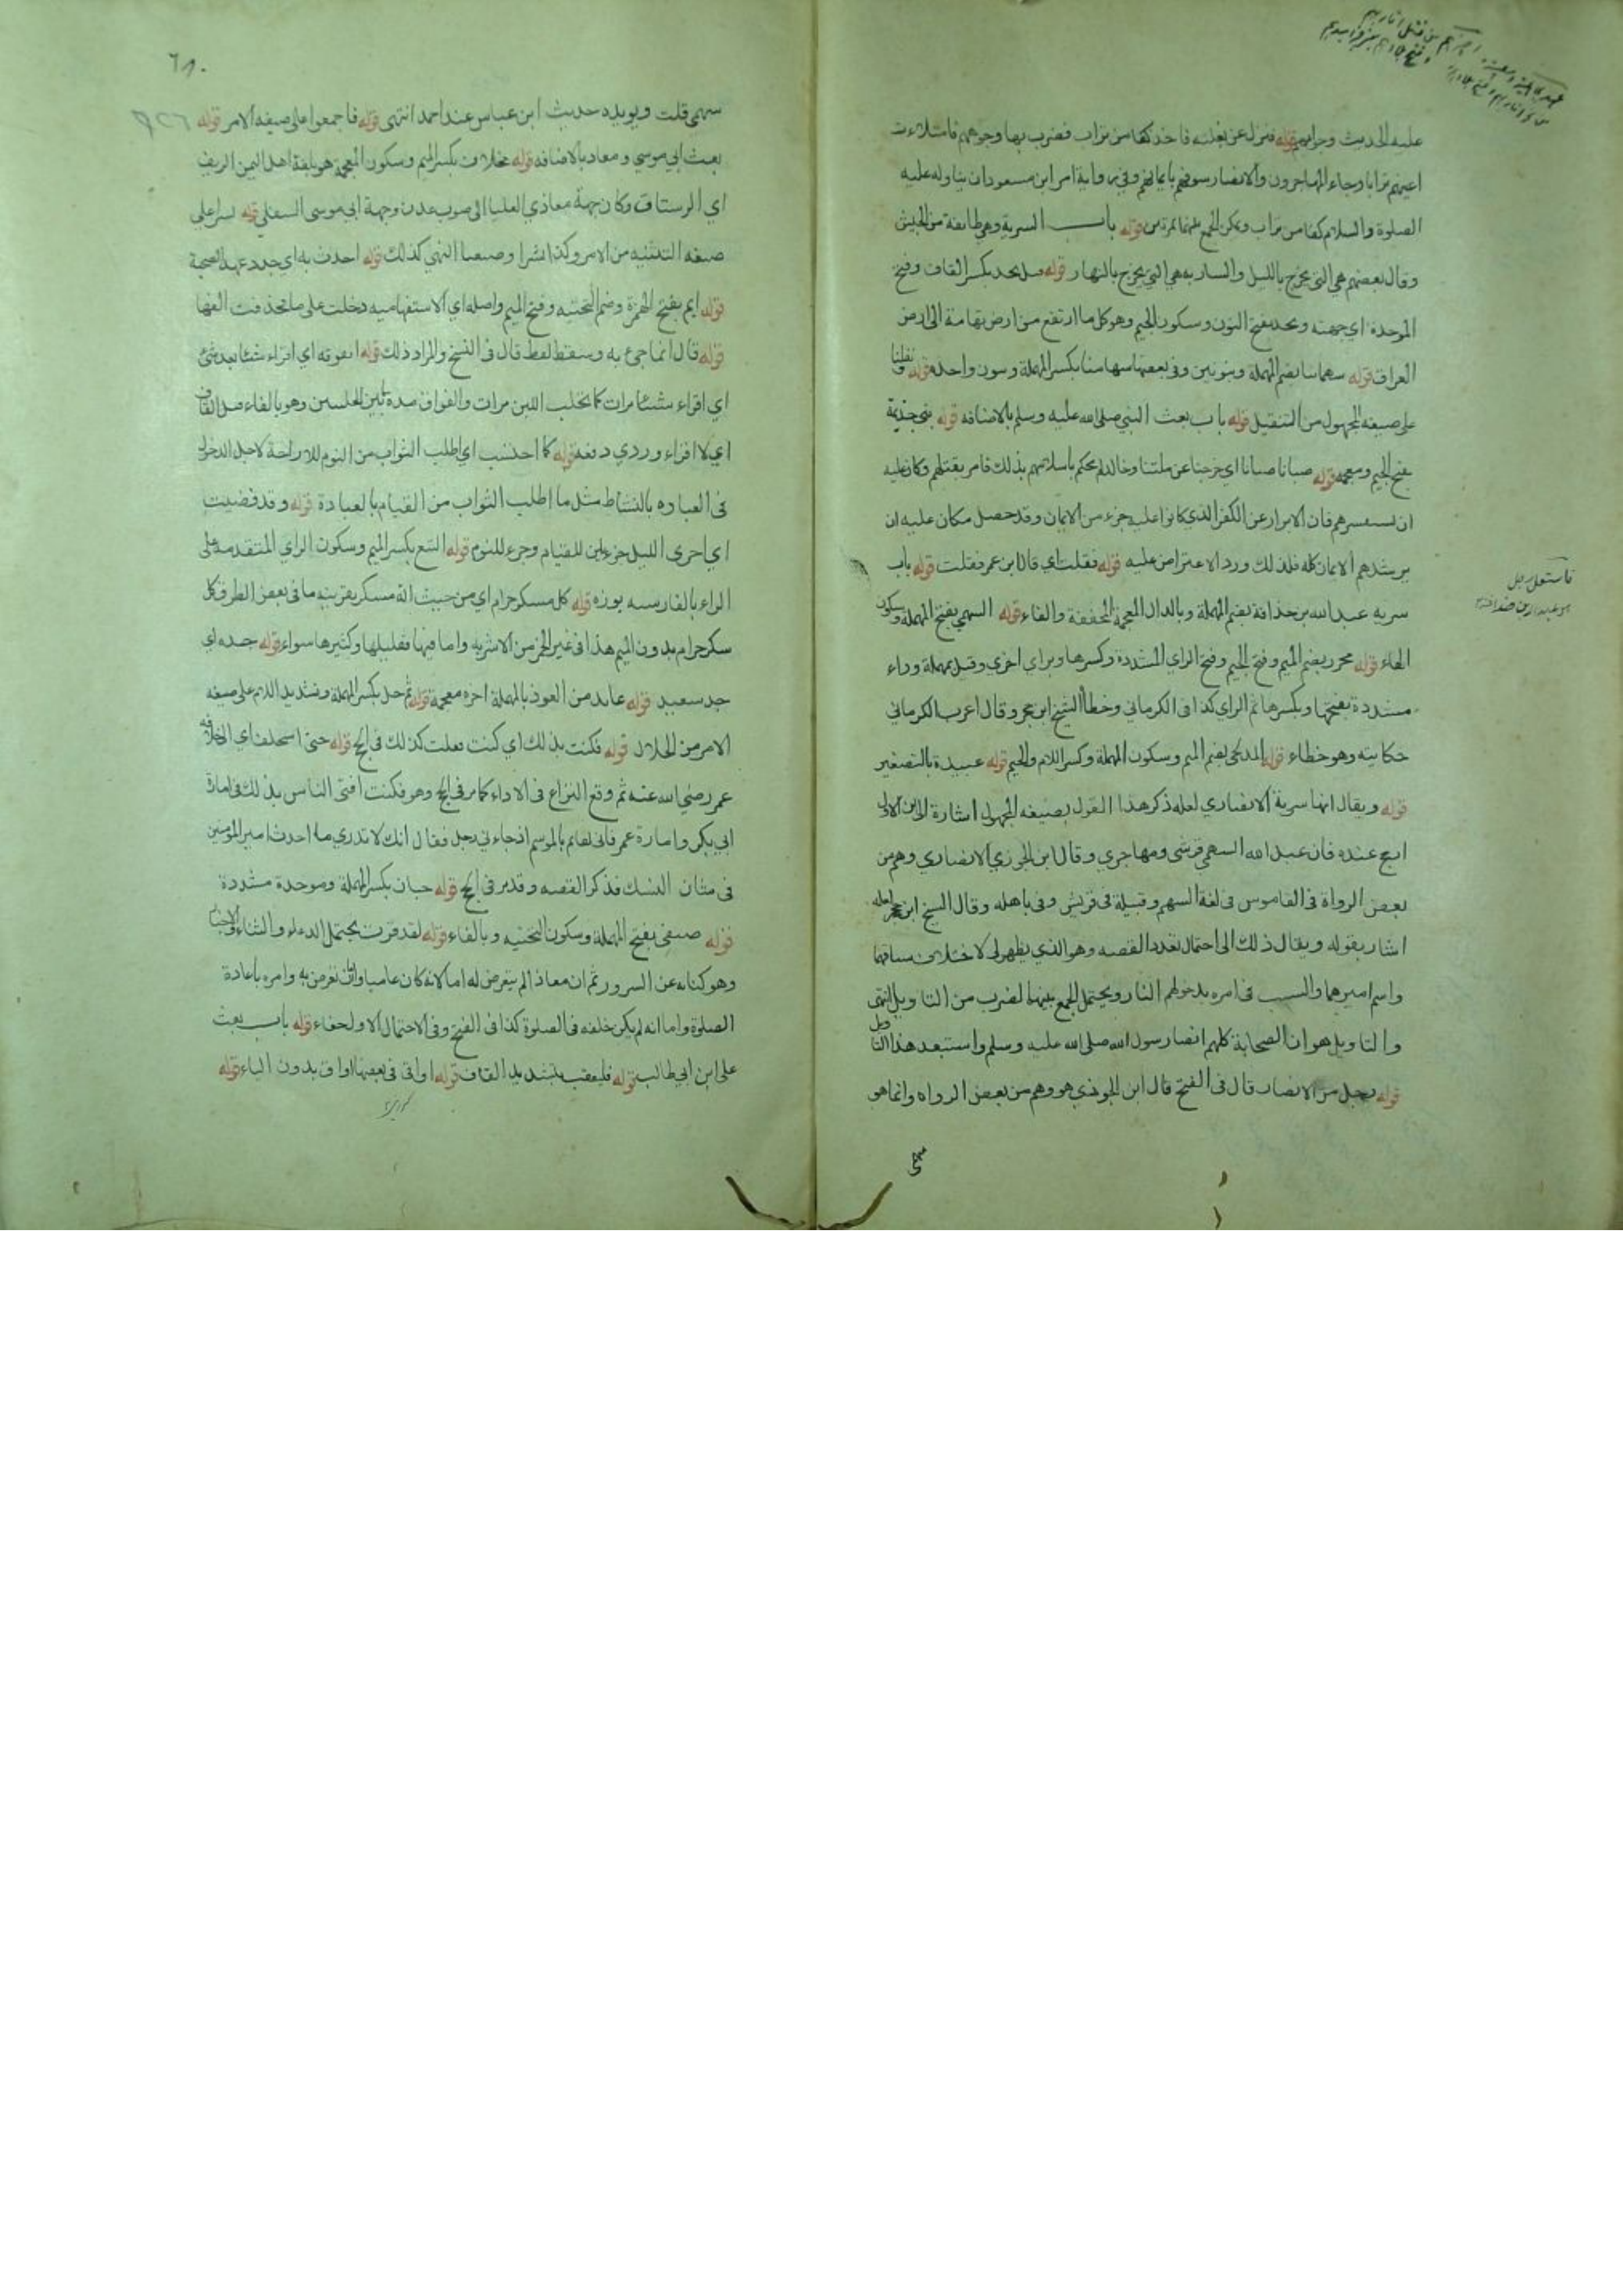 عليه الحديث وحوابهم قوله فنزل عن بغلته فاخذ كفا من تراب فضرب بها وجوههم فامتلات
اعينهم ترابا وجاء المهاجرون والانصار سيوفهم بايمانهم وفي رواية امر ابن مسعود ان يناوله عليه
الصلوة والسلام كفا من تراب ويمكن الجمع قوله باب السرية وهي طائفة من الجيش
وقال بعضهم هي التي يخرج بالليل والساربه هي التي يخرج بالنهار قوله قبل نجد بكسر القاف وفتح
الموحدة اي جهته ونجد بفتح النون وسكون الجيم وهو كل ما ارتفع من ارض تهامة الى ارض
العراق قوله سهماننا بضم المهملة وبنونين وفي بعضها سهامنا بكسر المهملة ونون واحدة قوله نفلنا
على صيغه المجهول من التنفيل قوله باب بعث النبي صلى الله عليه وسلم بالاضافه قوله بني جذيمة
بفتح الجيم ومعجمه قوله صبانا صبانا اي خرجنا عن ملتنا وخالد لم يحكم باسلامهم بذلك فامر بقتلهم وكان عليه
ان يستفسرهم فان الابرار عن الكفر الذي كانوا عليه جزء من الايمان وقد حصل مكان عليه ان
يرشدهم الايمان كله فلذلك ورد الاعتراض عليه قوله فقلت اي قال ابن عمر فقلت قوله باب
سريه عبد الله بن حذافة بضم المهملة وبالذال المعجمة المخففة والفاء قوله السهمي بفتح المهملة وسكون
الهاء قوله مجزز بضم الميم وفتح الجيم وفتح الزاي المشددة وكسرها وبزاي اخرى وقيل بمهملة وراء
مشددة بفتحها وبكسرها ثم الزاي كذا في الكرماني وخطأ الشيخ ابن حجر وقال اعرب الكرماني
حكايته وهو خطاء قوله المدلجي بضم الميم وسكون المهملة وكسر اللام والجيم قوله عبيدة بالتصغير
قوله ويقال انها سرية الانصاري لعله ذكر هذا القول بصيغه المجهول اشارة الى ان الاول
ارجح عنده فان عبد الله السهمي قرشي ومهاجري وقال ابن الجوزي الانصاري وهم من
بعض الرواة في القاموس في لغة السهم وقبيلة في قريش وفي باهله وقال الشيخ ابن حجر لعله
اشار بقوله ويقال ذلك الى احتمال تعدد القصه وهو الذي يظهر لي لاختلاف سياقها
واسم اميرهما والسبب في امره بدخولهم النار ويحتمل الجمع بينهما لضرب من التاويل انتهى
والتاويل هو ان الصحابة كلهم انصار رسول الله صلى الله عليه وسلم واستبعد هذا التاويل
قوله رجل من الانصار قال في الفتح قال ابن الجوزي هو وهم من بعض الرواه وانما هو
سهمي
فاستعمل رجل
٦٨٠
سهمي قلت ويويده حديث ابن عباس عند احمد انتهى قوله فاجمعوا على صيغه الامر قوله
بعث ابي موسى ومعاذ بالاضافه قوله مخلاف بكسر الميم وسكون المعجمة هو بلغة اهل اليمن الريف
اي الرستاق وكان جهة معاذ العليا الى صوب عدن وجهة ابي موسى السفلى قوله يسرا على
صيغه التثنيه من الامر وكذا بشرا وصيغتا النهي كذلك قوله احدث به اي جدد عهد الصحبة
قوله ايم بفتح الهمزة وضم التحتيه وفتح الميم واصله اي الاستفهاميه دخلت على ما حذفت الفها
قوله قال انما جيء به وسقط لفظ قال في النسخ والمراد ذلك قوله اتفوقه اي اقراء شيئا بعد شيء
اي اقراء شيئا مرات كما يحلب اللبن مرات والفواق مدة ما بين الحلبتين وهو بالفاء قبل القاف
اي لا اقراء وردي دفعه قوله كما احتسب اي اطلب الثواب من النوم للاراحة لاجل الدخول
في العباده بالنشاط مثل ما اطلب الثواب من القيام بالعبادة قوله وقد قضيت
اي اجزى الليل جزءين للقيام وجزء للنوم قوله البتع بكسر الميم وسكون الزاي المتقدمة على
الراء بالفارسيه بوزه قوله كل مسكر حرام اي من حيث انه مسكر بقرينه ما في بعض الطرق كل
سكر حرام بدون الميم هذا في غير الخمر من الاشربه واما فيها فقليلها وكثيرها سواء قوله جده اي
جد سعيد قوله عايذ من العوذ بالمهملة اخره معجمة قوله ثم حل بكسر المهملة وتشديد اللام على صيغه
الامر من الحلال قوله فكنت بذلك اي كنت فعلت كذلك في الحج قوله حتى استخلف اي الخلافه
عمر رضي الله عنه ثم وقع النزاع في الاداء كما مر في الحج وهو فكنت افتي الناس بذلك في امارة
ابي بكر وامارة عمر فاني لقائم بالموسم اذ جاءني رجل فقال انك لا تدري ما احدث امير المؤمنين
في شان النسك فذكر القصه وقد مر في الحج قوله حبان بكسر المهملة وموحدة مشددة
قوله صيفي بفتح المهملة وسكون التحتيه وبالفاء قوله لقد قرت يحتمل الدعاء والثناء والاخبار
وهو كنايه عن السرور ثم ان معاذا لم يتعرض له اما لانه كان غائبا وامره باعادة
الصلوة واما انه لم يكن خلفه في الصلوة كذا في الفتح وفي الاحتمال الاول خفاء قوله باب بعث
علي ابن ابي طالب قوله فليعقب بتشديد القاف قوله اواقي في بعضها اواق بدون الياء قوله